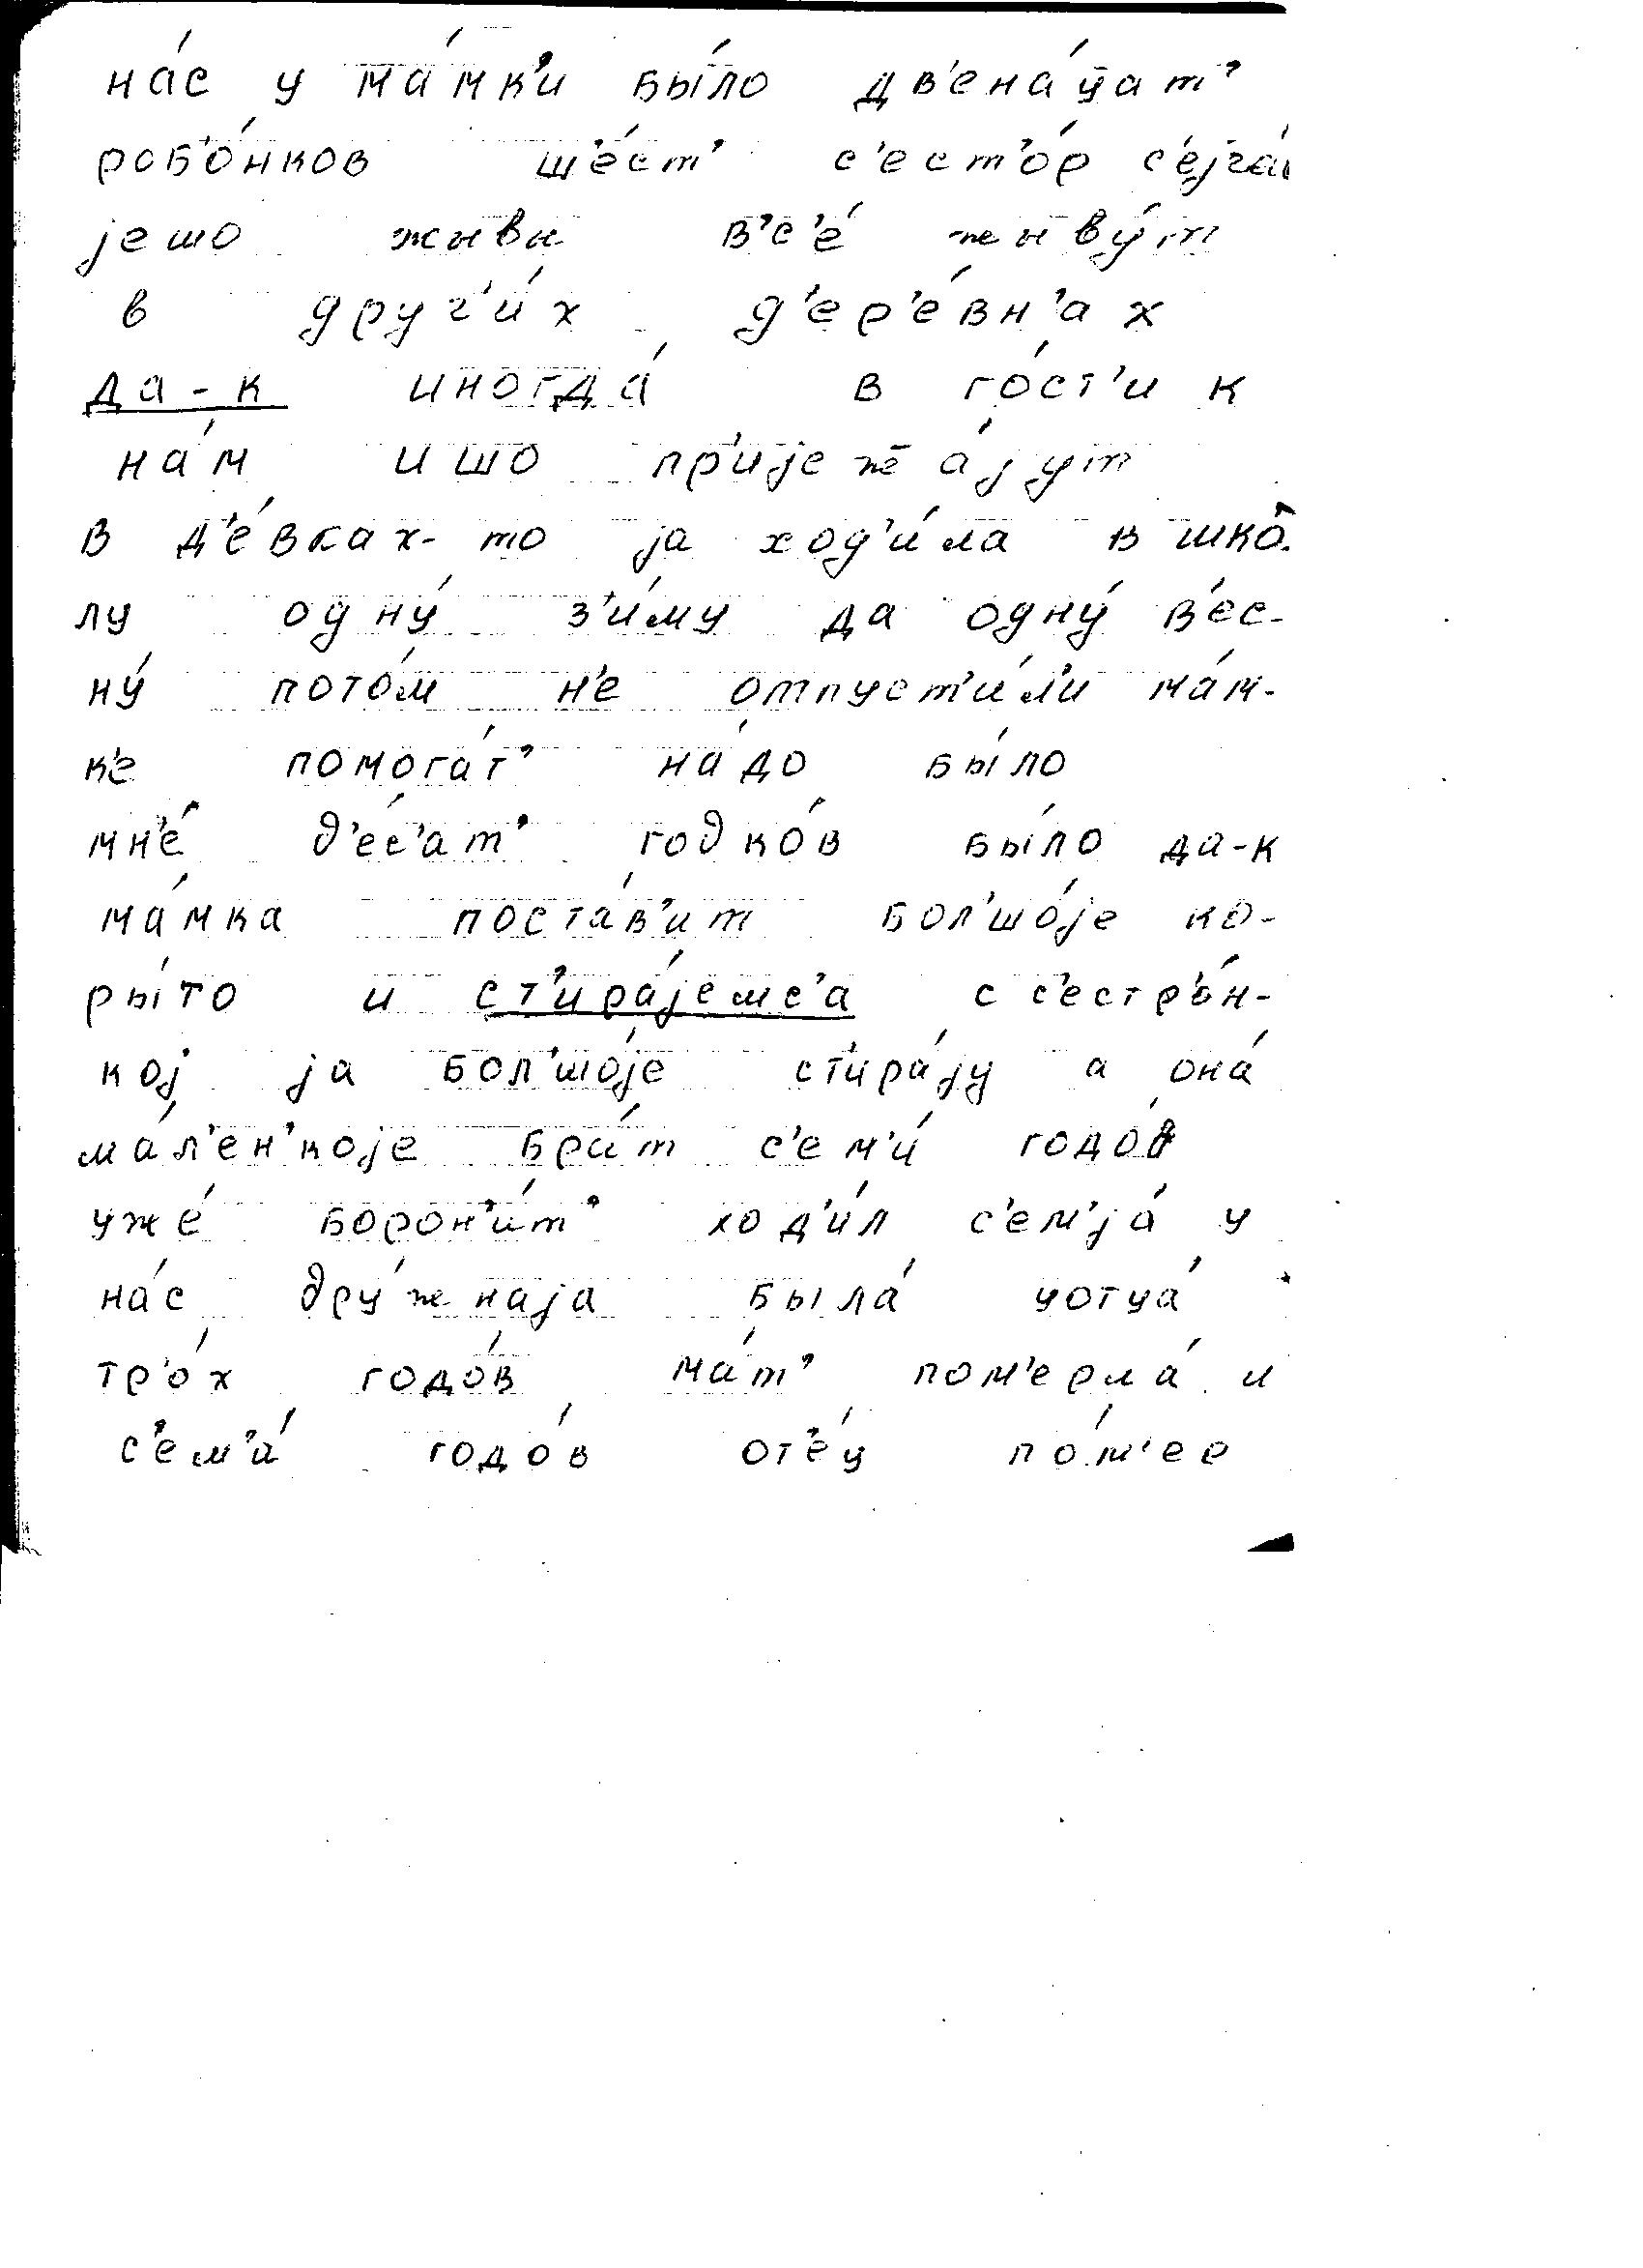 на́с у ма́мк'и бы́ло дв'ена́ц̄ат'
роб'о́нков ш'е́ст' с'ест'о́р
јешо жывы в'с'е́ жыву́т
в друг'и́х д'ер'е́вн'ах
да-к иногда́ в го́ст'и к
на́м ишо пр'ијеж̄а́јут
в д'е́вках-то ја ход'и́ла в шко̂-
лу одну́ з'и́му да одну́ в'ес-
ну́ пото́м н'е отпуст'и́л'и ма́м-
к'е помога́т' на́до бы́ло
мн'е́ д'е́с'ат' годко́в бы́ло да-к
ма́мка поста́в'ит бол'шо́је ко-
ры́то и ст'ира́јемс'а с с'естр'о́н-
кој ја бол'шо́је ст'ира́ју а она́
ма́л'ен'којe бра́т с'ем'и́ годо́в
уже́ борон'и́т' ход'и́л с'ем'ја́ у
на́с дру́жнаја была́ цотца́
тр'о́х годо́в ма́т' пом'ерла́ и
с'ем'и́ годо́в от'е́ц по́м'ер